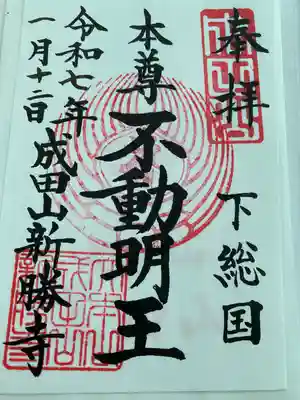 奉拝
下総国
本尊
不動明王
令和七年
一月十二日
成田山新勝寺